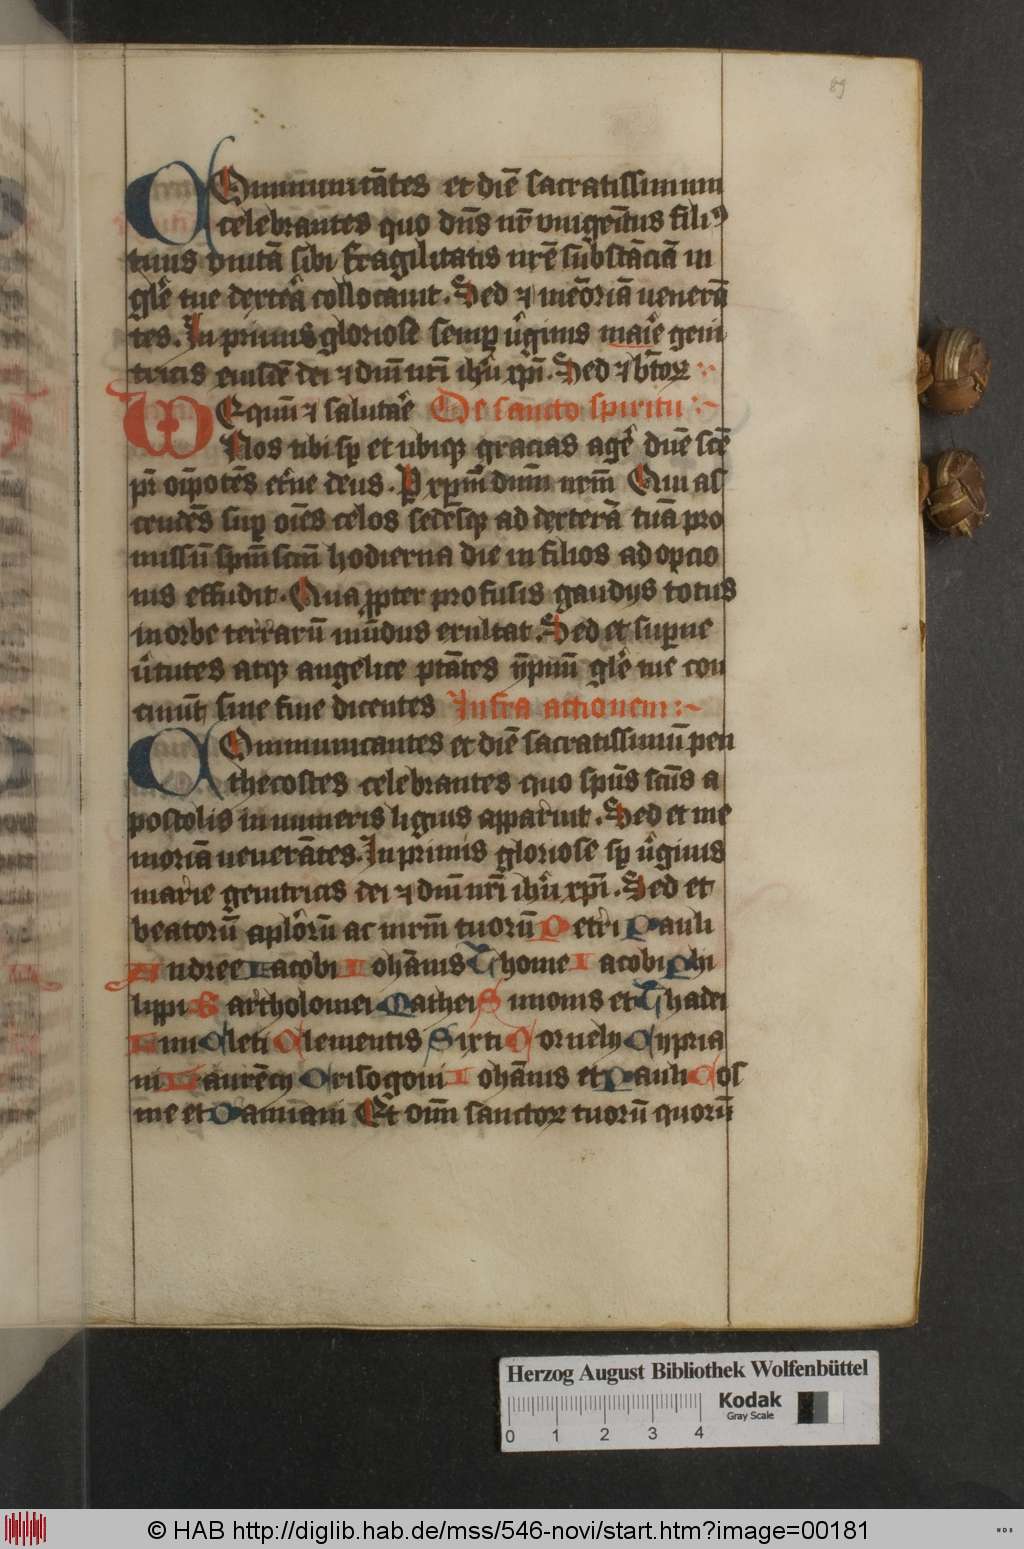 89
COmmunicātes et diē sacratissimum
celebrantes quo dn̄s nr̄ vnigeīt̄us fili9
tuus vnitā sibi fragilitatis nrē substāciā in
glē tue dexterā collocauit. Sed ⁊ meōriā venerā
tes. In primis gloriose semp v̄ginis marie geni
tricis eiusdē dei ⁊ dn̄i nr̄i ihū xpī. Sed ⁊ btōꝝ
VEre dignū ⁊ salutāe De sancto spiritu
Nos tibi sp et ubiqꝫ gracias agē dn̄e scē
pr̄ oīpotēs etērne deus. P xp̄m dn̄m nrm̄ Qui as
cendēs sup oīes celos sedēsqꝫ ad dexterā tuā pro
missū sp̄m scm̄ hodierna die in filios adopcio
nis effudit. Qua ꝓpter profusis gaudijs totus
in orbe terrarū mūdus exultat. Sed et supne
v̄tutes atqꝫ angelice ptātes ȳpnū glē tue con
cinūt sine fine dicentes Infra actionem
COmmunicantes et diē sacratissimū pen
thecostes celebrantes quo spūs scūs a
postolis in numeris liguis apparuit. Sed et me
moriā venerātes. In primis gloriose sp v̄ginis
marie genitricis dei ⁊ dn̄i nr̄i ihū xpī. Sed et
beatorū aplōrū ac mrm̄ tuorū Petri Pauli
Andree Iacobi Iohānis Thome Iacobi Phi
lippi Bartholomei Mathei Simonis et Thadei
Lini Cleti Clementis Sixti Cornelij Cypria
ni Laurēcij Crisogoni Iohānis et Pauli Cos
me et Damiani Et oīm sanctoꝝ tuorū quorū
Herzog August Bibliothek Wolfenbüttel
Kodak
Gray Scale
0 1 2 3 4
© HAB http://diglib.hab.de/mss/546-novi/start.htm?image=00181